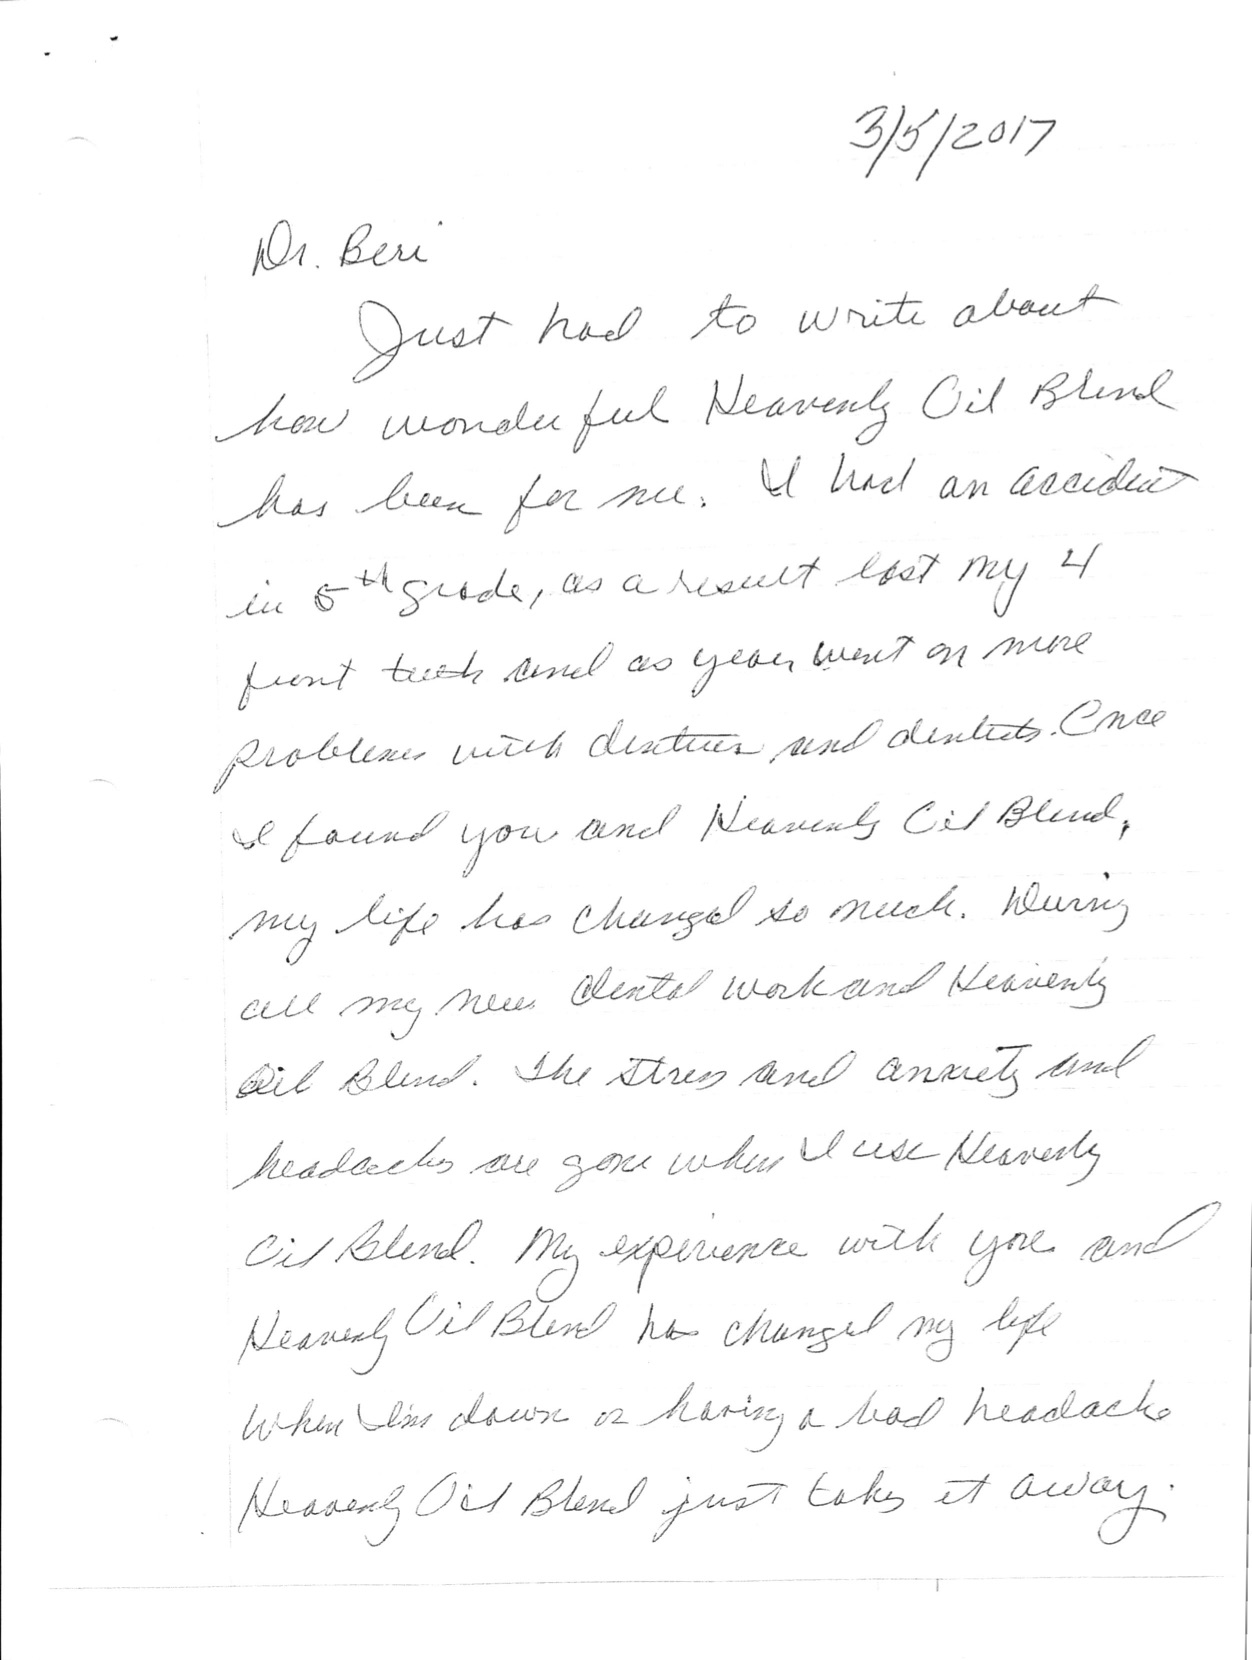 3/5/2017
Dr. Beri
Just had to write about
how wonderful Heavenly Oil Blend
has been for me. I had an accident
in 5th grade, as a result lost my 4
front teeth and as years went on more
problems with dentures and dentists. Once
I found you and Heavenly Oil Blend,
my life has changed so much. During
all my new dental work and Heavenly
Oil Blend. The stress and anxiety and
headaches are gone when I use Heavenly
Oil Blend. My experience with you and
Heavenly Oil Blend has changed my life
When I'm down or having a bad headache
Heavenly Oil Blend just takes it away.